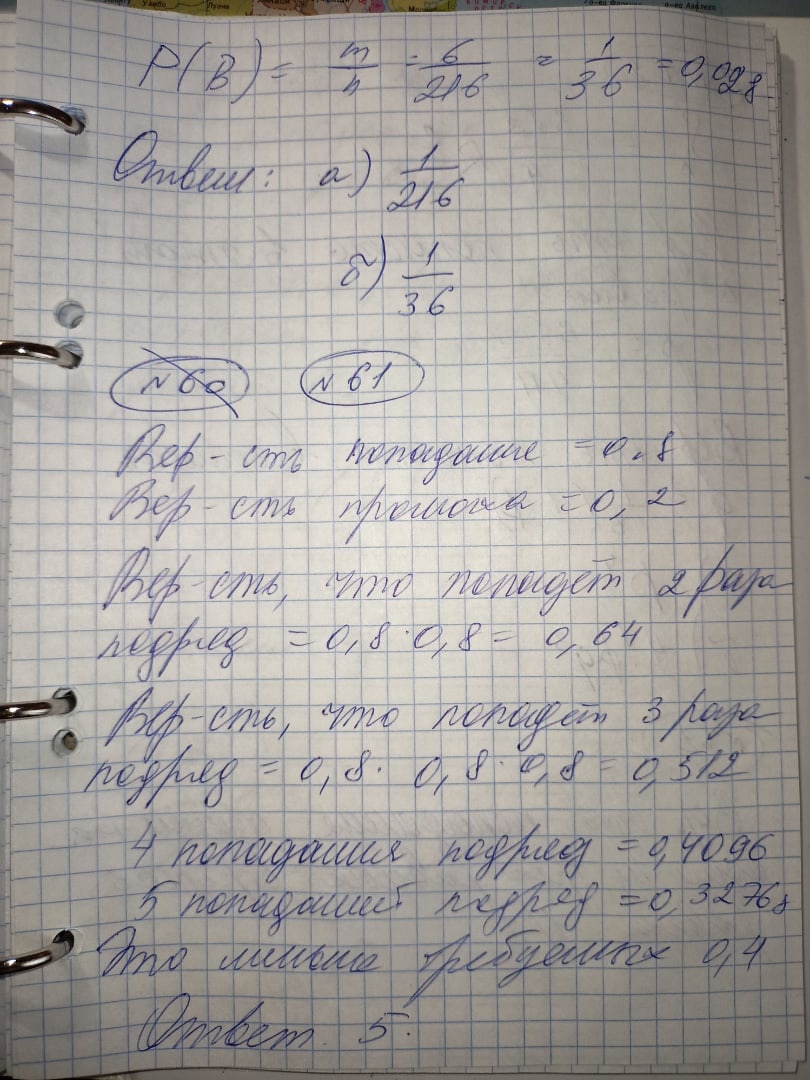 P(B) = m/n = 6/216 = 1/36 = 0,028
Ответ: а) 1/216
б) 1/36
№60 №61
Вер-сть попадание = 0,8
Вер-сть промаха = 0,2
Вер-сть, что попадёт 2 раза
подряд = 0,8 · 0,8 = 0,64
Вер-сть, что попадёт 3 раза
подряд = 0,8 · 0,8 · 0,8 = 0,512
4 попадания подряд = 0,4096
5 попаданий подряд = 0,32768
Это меньше требуемых 0,4
Ответ. 5.